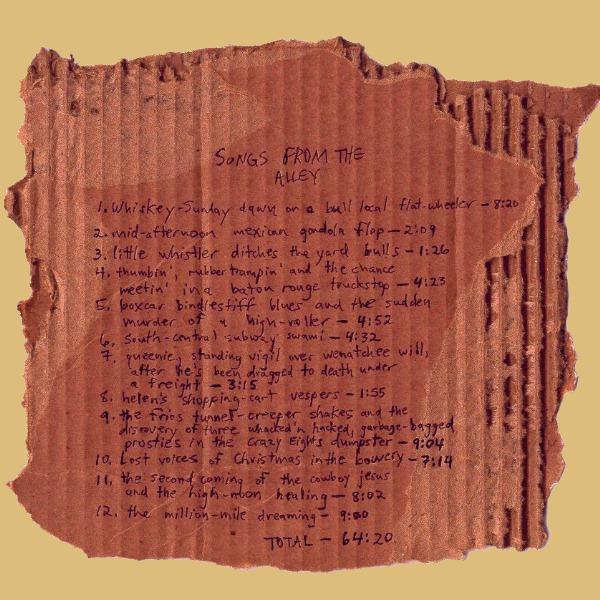 SONGS FROM THE
ALLEY
1. Whiskey-Sunday dawn on a bull local flat-wheeler – 8:20
2. mid-afternoon mexican gondola flop – 2:09
3. little whistler ditches the yard bulls – 1:26
4. thumbin', rubbertrampin' and the chance
meetin' in a baton rouge truckstop – 4:23
5. boxcar bindlestiff blues and the sudden
murder of a high-roller – 4:52
6. South-central subway swami – 4:32
7. queenie, standing vigil over wenatchee will,
after he's been dragged to death under
a freight – 3:15
8. helen's shopping-cart vespers – 1:55
9. the frios tunnel-creeper shakes and the
discovery of three whacked n hacked, garbage-bagged
prosties in the Crazy Eights dumpster – 9:04
10. Lost voices of Christmas in the bowery – 7:14
11. the second coming of the cowboy jesus
and the high-noon healing – 8:02
12. the million-mile dreaming – 9:00
TOTAL – 64:20